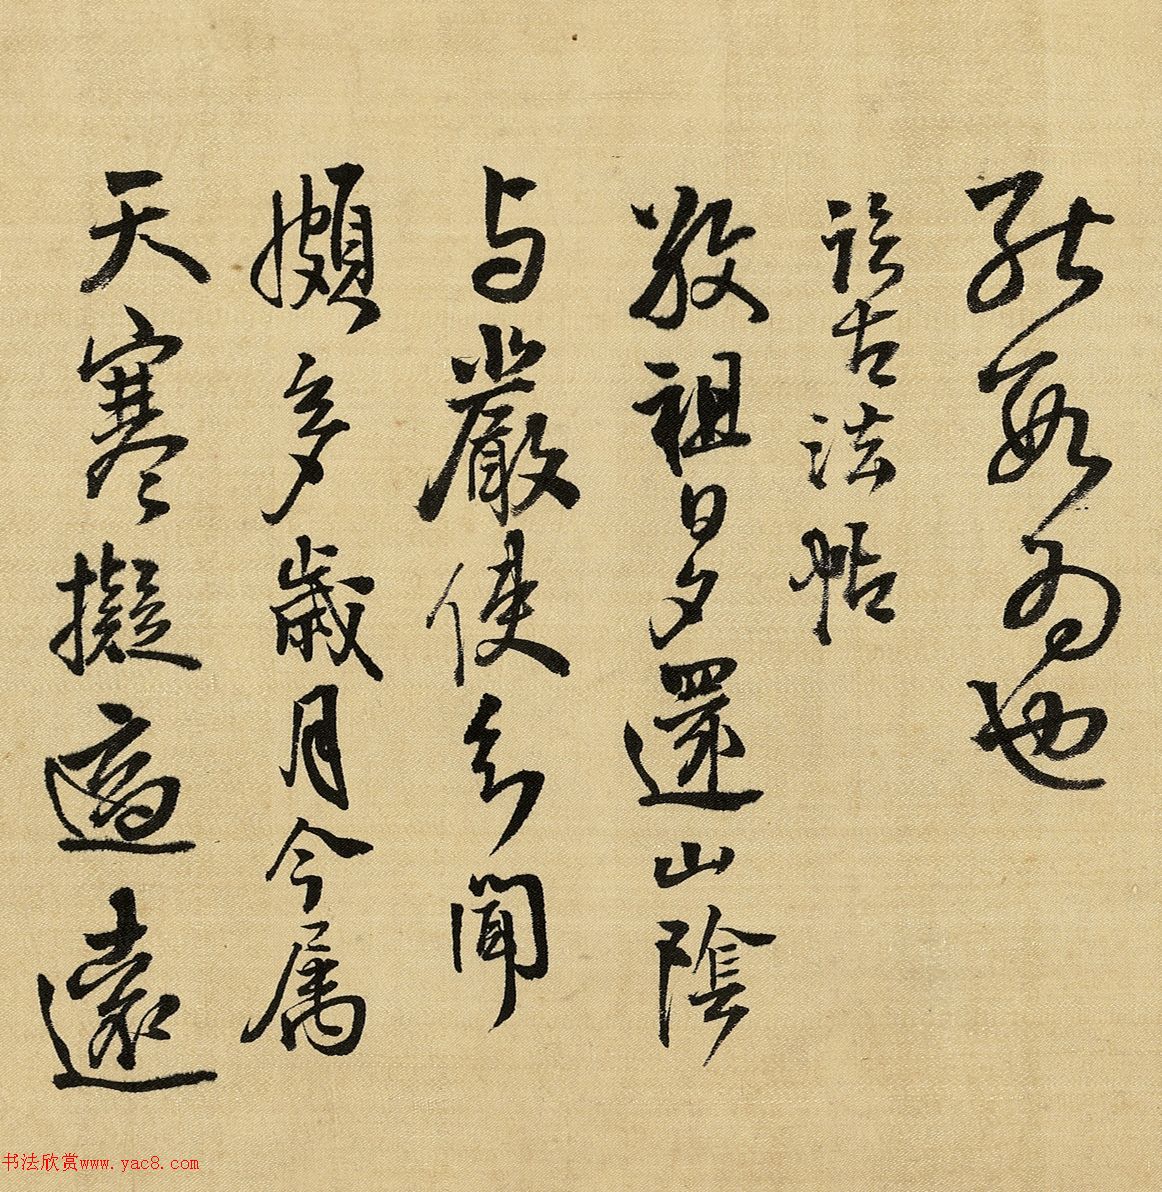 能數為也
臨古法帖
敬祖日夕還山陰
与嚴使君聞
頗多歲月今属
天寒擬適遠
书法欣赏www.yac8.com